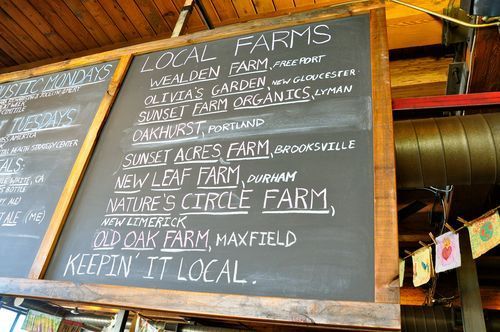 USTIC MONDAYS
TUESDAYS
AMERICA
HEALTH STRATEGY CENTER
ALS:
, CA
BOTTLE
ALE (ME)
LOCAL FARMS
WEALDEN FARM, FREEPORT
OLIVIA'S GARDEN NEW GLOUCESTER
SUNSET FARM ORGANICS, LYMAN
OAKHURST, PORTLAND
SUNSET ACRES FARM, BROOKSVILLE
NEW LEAF FARM, DURHAM
NATURE'S CIRCLE FARM,
NEW LIMERICK
OLD OAK FARM, MAXFIELD
KEEPIN' IT LOCAL.